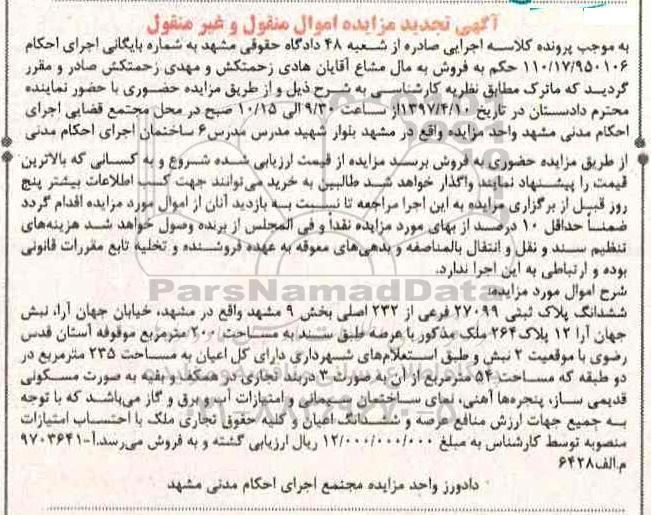 آگهی تجدید مزایده اموال منقول و غیر منقول
به موجب پرونده کلاسه اجرایی صادره از شعبه ۴۸ دادگاه حقوقی مشهد به شماره بایگانی اجرای احکام
۱۱۰/۱۷/۹۵۰۱۰۶ حکم به فروش به مال مشاع آقایان هادی زحمتکش و مهدی زحمتکش صادر و مقرر
گردید که ماترک مطابق نظریه کارشناسی به شرح ذیل و از طریق مزایده حضوری با حضور نماینده
محترم دادستان در تاریخ ۱۳۹۷/۴/۱۰از ساعت ۹/۳۰ الی ۱۰/۱۵ صبح در محل مجتمع قضایی اجرای
احکام مدنی مشهد واحد مزایده واقع در مشهد بلوار شهید مدرس مدرس۶ ساختمان اجرای احکام مدنی
از طریق مزایده حضوری به فروش برسد مزایده از قیمت ارزیابی شده شروع و به کسانی که بالاترین
قیمت را پیشنهاد نمایند واگذار خواهد شد طالبین به خرید می‌توانند جهت کسب اطلاعات بیشتر پنج
روز قبل از برگزاری مزایده به این اجرا مراجعه تا نسبت به بازدید آنان از اموال مورد مزایده اقدام گردد
ضمناً حداقل ۱۰ درصد از بهای مورد مزایده نقداً و فی المجلس از برنده وصول خواهد شد هزینه‌های
تنظیم سند و نقل و انتقال بالمناصفه و بدهی‌های معوقه به عهده فروشنده و تخلیه تابع مقررات قانونی
بوده و ارتباطی به این اجرا ندارد.
شرح اموال مورد مزایده:
ششدانگ پلاک ثبتی ۲۷۰۹۹ فرعی از ۲۳۲ اصلی بخش ۹ مشهد واقع در مشهد، خیابان جهان آرا، نبش
جهان آرا ۱۲ پلاک۲۶۴ ملک مذکور با عرصه طبق سند به مساحت ۲۰۰ مترمربع موقوفه آستان قدس
رضوی با موقعیت ۲ نبش و طبق استعلام‌های شهرداری دارای کل اعیان به مساحت ۲۳۵ مترمربع در
دو طبقه که مساحت ۵۴ مترمربع از آن به صورت ۳ دربند تجاری در همکف و بقیه به صورت مسکونی
قدیمی ساز، پنجره‌ها آهنی، نمای ساختمان سیمانی و امتیازات آب و برق و گاز می‌باشد که با توجه
به جمیع جهات ارزش منافع عرصه و ششدانگ اعیان و کلیه حقوق تجاری ملک با احتساب امتیازات
منصوبه توسط کارشناس به مبلغ ۱۲/۰۰۰/۰۰۰/۰۰۰ ریال ارزیابی گشته و به فروش می‌رسد.آ-۹۷۰۳۶۴۱
م.الف۶۴۲۸
دادورز واحد مزایده مجتمع اجرای احکام مدنی مشهد
ParsNamadData
۰۲۱-۸۸۳۴۹۶۷۰-۵